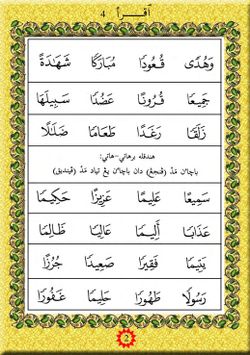 أقرأ 4
وَهُدًى قُعُودًا مُبَارَكًا شَهَادَةً
جَمِيعًا قُرُونًا عَضُدًا سَبِيلَهَا
زَلَقًا رَغَدًا طَعَامًا ضَلَالًا
هندقله برهاتي-هاتي:
باچاءن مد (ڤنجڠ) دان باچاءن يڠ تياد مد (ڤينديق)
سَمِيعًا عَلِيمًا عَزِيزًا حَكِيمًا
عَذَابًا أَلِيمًا عَالِيًا ظَالِمًا
يَتِيمًا فَقِيرًا صَعِيدًا جُرُزًا
رَسُولًا طَهُورًا حَلِيمًا غَفُورًا
2